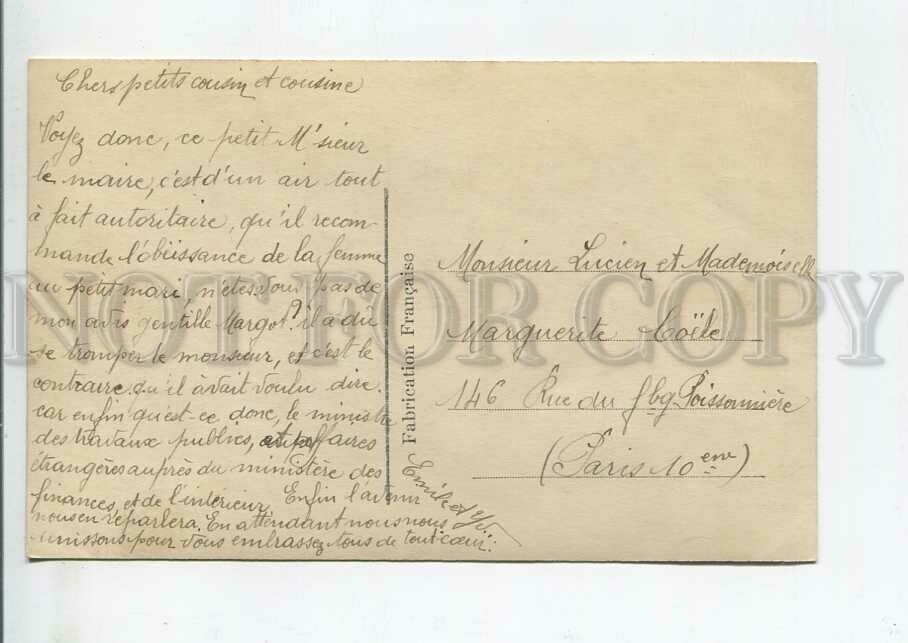 Chers petits cousin et cousine
Voyez donc, ce petit M'sieur
le maire, c'est d'un air tout
à fait autoritaire, qu'il recom-
mande l'obéissance de la femme
au petit mari, n'êtes vous pas de
mon avis gentille Margot? il a dû
se tromper le monsieur, et c'est le
contraire qu'il avait voulu dire.
car enfin qu'est-ce donc, le ministre
des travaux publics, affaires
étrangères auprès du ministère des
finances et de l'intérieur. Enfin l'avenir
nous en reparlera. En attendant nous nous
unissons pour vous embrassez tous de tout cœur.
Emile et
Fabrication Française
Monsieur Lucien et Mademoiselle
Marguerite
146 Rue du fbg Poissonnière
(Paris 10eme)
NOT FOR COPY